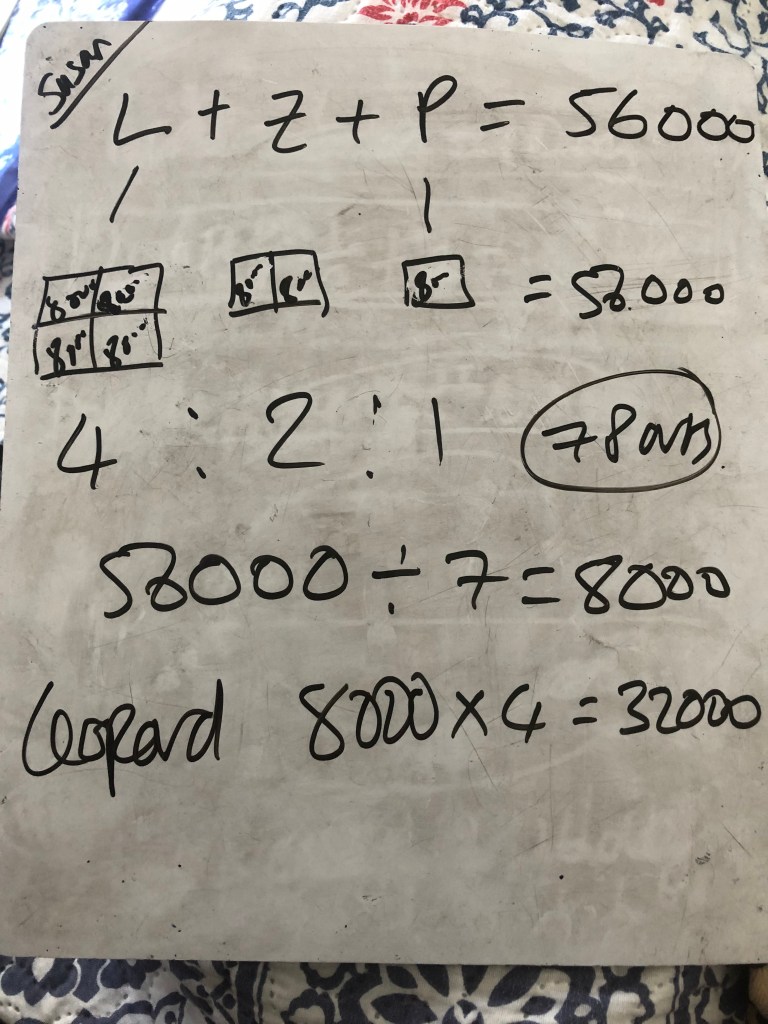 Susan
L + Z + P = 56000
8000 800 800 800 8000 = 56000
800 800
4 : 2 : 1 7 Parts
56000 ÷ 7 = 8000
leopard 8000 × 4 = 32000